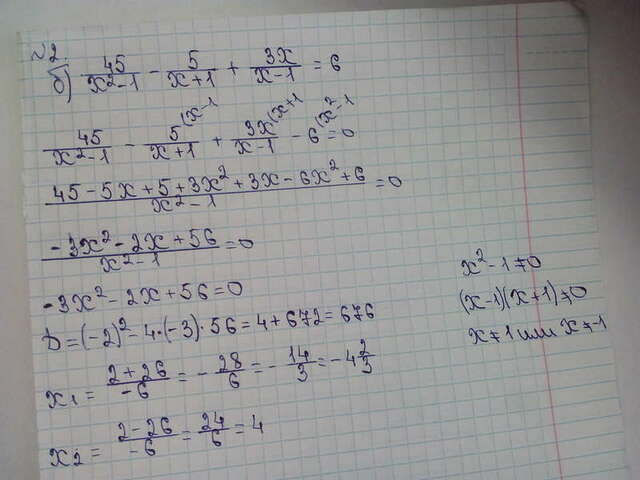 №2.
б) 45/(x²-1) - 5/(x+1) + 3x/(x-1) = 6
45/(x²-1) - 5(x-1/(x+1) + 3x(x+1/(x-1) - 6(x²-1 = 0
(45-5x+5+3x²+3x-6x²+6)/(x²-1) = 0
(-3x²-2x+56)/(x²-1) = 0
-3x²-2x+56=0
D=(-2)²-4·(-3)·56=4+672=676
x₁ = (2+26)/(-6) = -28/6 = -14/3 = -4 2/3
x₂ = (2-26)/(-6) = 24/6 = 4
x²-1≠0
(x-1)(x+1)≠0
x≠1 или x≠-1